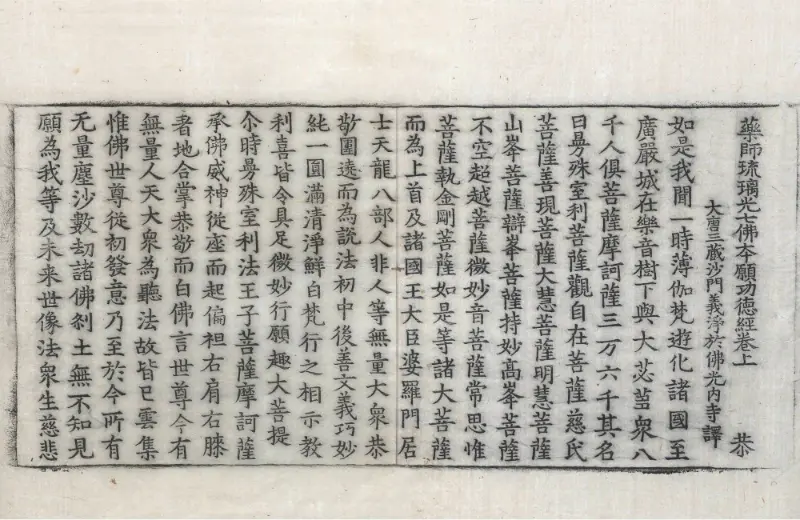 藥師琉璃光七佛夲願功德經卷上　恭
大唐三蔵沙門義淨於佛光內寺譯
如是我聞一時薄伽梵遊化諸國至
廣嚴城在樂音樹下與大苾蒭衆八
千人俱菩薩摩訶薩三万六千其名
曰曼殊室利菩薩觀自在菩薩慈氏
菩薩善現菩薩大慧菩薩明慧菩薩
山峯菩薩辯峯菩薩持妙髙峯菩薩
不空超越菩薩微妙音菩薩常思惟
菩薩執金剛菩薩如是等諸大菩薩
而為上首及諸國王大臣婆羅門居
士天龍八部人非人等無量大衆恭
敬圍遶而為說法初中後善文義巧妙
純一圓滿清淨鮮白梵行之相示教
利喜皆令具足微妙行願趣大菩提
尒時曼殊室利法王子菩薩摩訶薩
承佛威神從座而起偏袒右肩右膝
著地合掌恭敬而白佛言世尊今有
無量人天大衆為聽法故皆已雲集
惟佛世尊從初發意乃至於今所有
无量塵沙數劫諸佛剎土無不知見
願為我等及未来世像法衆生慈悲